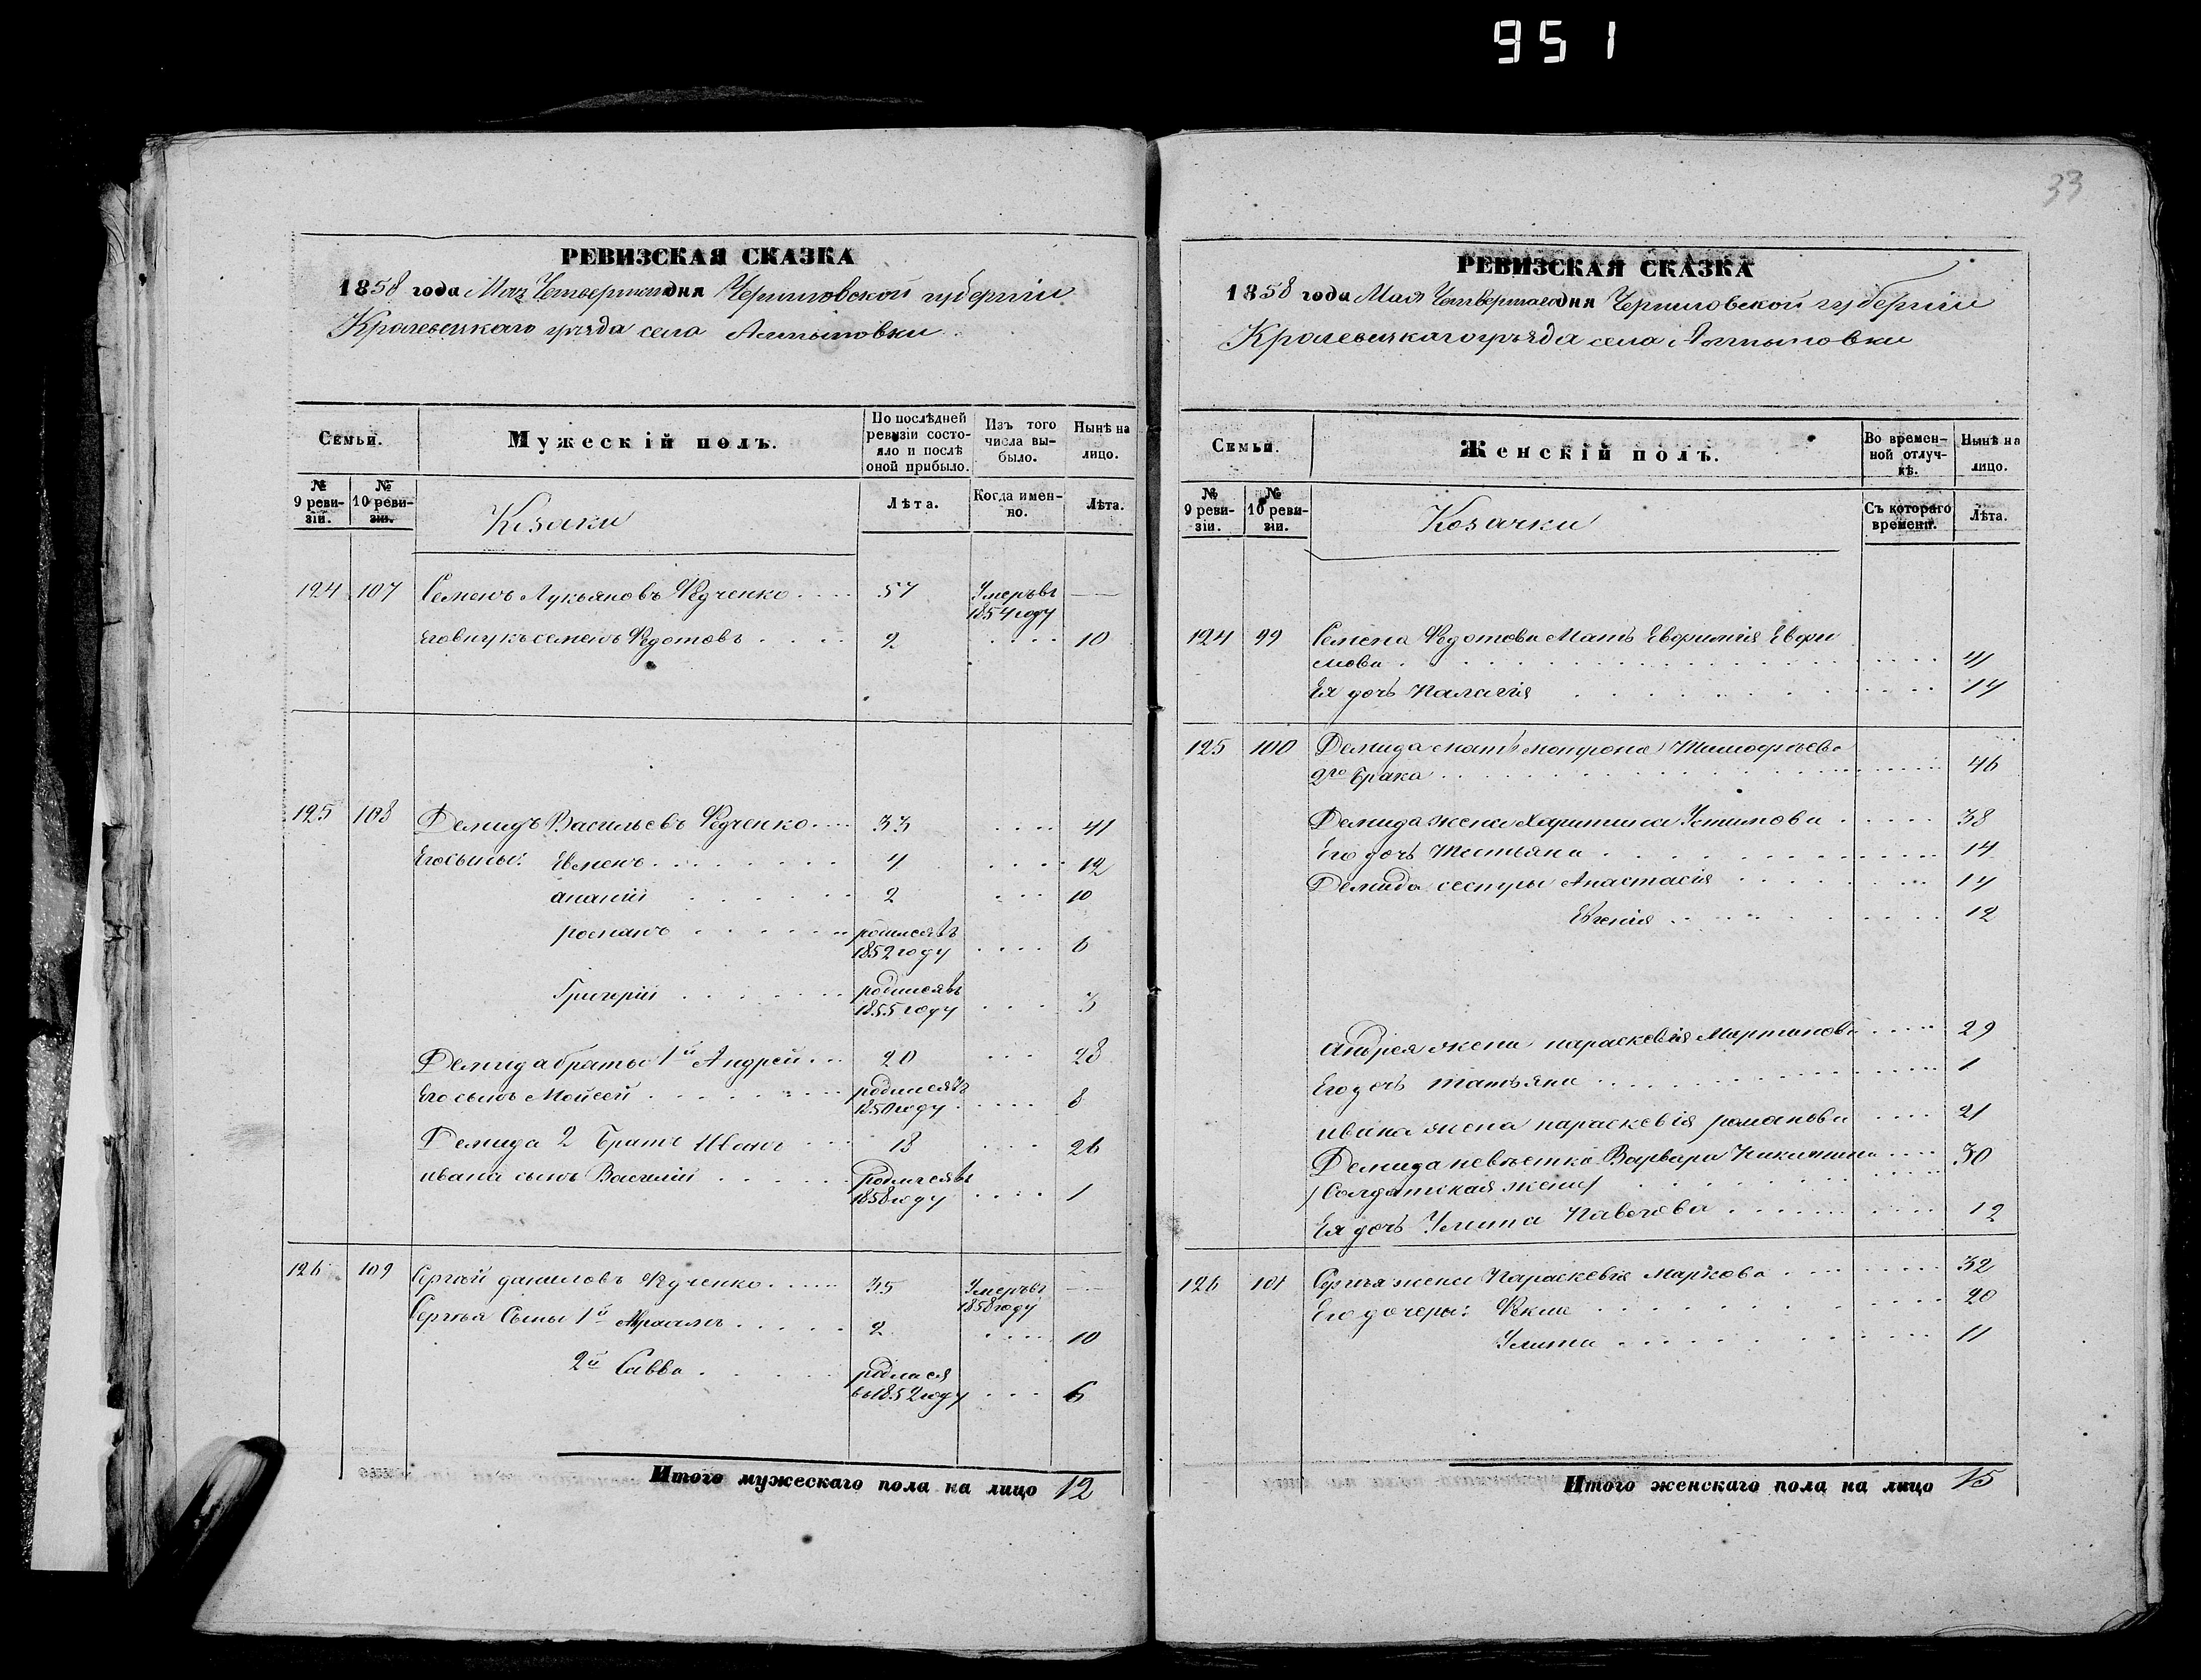 951
33
РЕВИЗСКАЯ СКАЗКА
1858 года Мая Четвертого дня Черниговской губерніи
Кролевецкаго уѣзда села Алтыновки
Семьи.
Мужескій полъ.
По послѣдней ревизіи состояло и послѣ оной прибыло.
Изъ того числа выбыло.
Нынѣ на лицо.
№ 9 ревизіи.
№ 10 ревизіи.
Козаки
Лѣта.
Когда именно.
Лѣта.
124 107 Семенъ Лукьяновъ Федченко .... 57 Умеръ въ 1854 году —
Его внукъ Семенъ Федотовъ .... 2 .... 10
125 108 Демидъ Васильевъ Федченко .... 33 .... 41
Его сыны: Евменъ ........ 4 .... 12
ананій ...... 2 .... 10
романъ ...... родился въ 1852 году .... 6
Григорій ...... родился въ 1855 году .... 3
Демида братья 1й Андрей ... 20 ... 28
Его сынъ Мойсей ....... родился въ 1850 году ..... 8
Демида 2 братъ Иванъ ... 18 ... 26
ивана сынъ Василій ..... Родился въ 1858 году .... 1
126 109 Сергѣй даниловъ Федченко ..... 35 Умеръ въ 1858 году —
Сергѣя Сыны 1й ..... 2 .... 10
2й Савва ..... родился въ 1852 году ... 6
Итого мужескаго пола на лицо 12
РЕВИЗСКАЯ СКАЗКА
1858 года Мая Четвертаго дня Черниговской губерніи
Кролевецкаго уѣзда села Алтыновки
Семьи.
Женскій полъ.
Во временной отлучкѣ.
Нынѣ на лицо.
№ 9 ревизіи.
№ 10 ревизіи.
Козачки
Съ котораго времени.
Лѣта.
124 99 Семена Федотова Мать Евфимія Евфи
мова ........ 41
Ея дочь Палагія ........ 14
125 100 Демида мать мотрона Тимофѣева
2го брака ........ 46
Демида жена Харитина Устимова ..... 38
Его дочь Татіяна ........ 14
Демида сестры Анастасія ...... 14
Евгенія ...... 12
Андрея жена параскевія Мартинова .... 29
Его дочь татьяна ........ 1
ивана жена параскевія романова .... 21
Демида невѣстка Варвара Никитина .... 30
/Солдатская жена/ ......
Ея дочь Улита Павлова ...... 12
126 101 Сергѣя жена Параскевія Маркова ...... 32
Его дочеры: Фекла ........ 20
Улита ........ 11
Итого женскаго пола на лицо 15